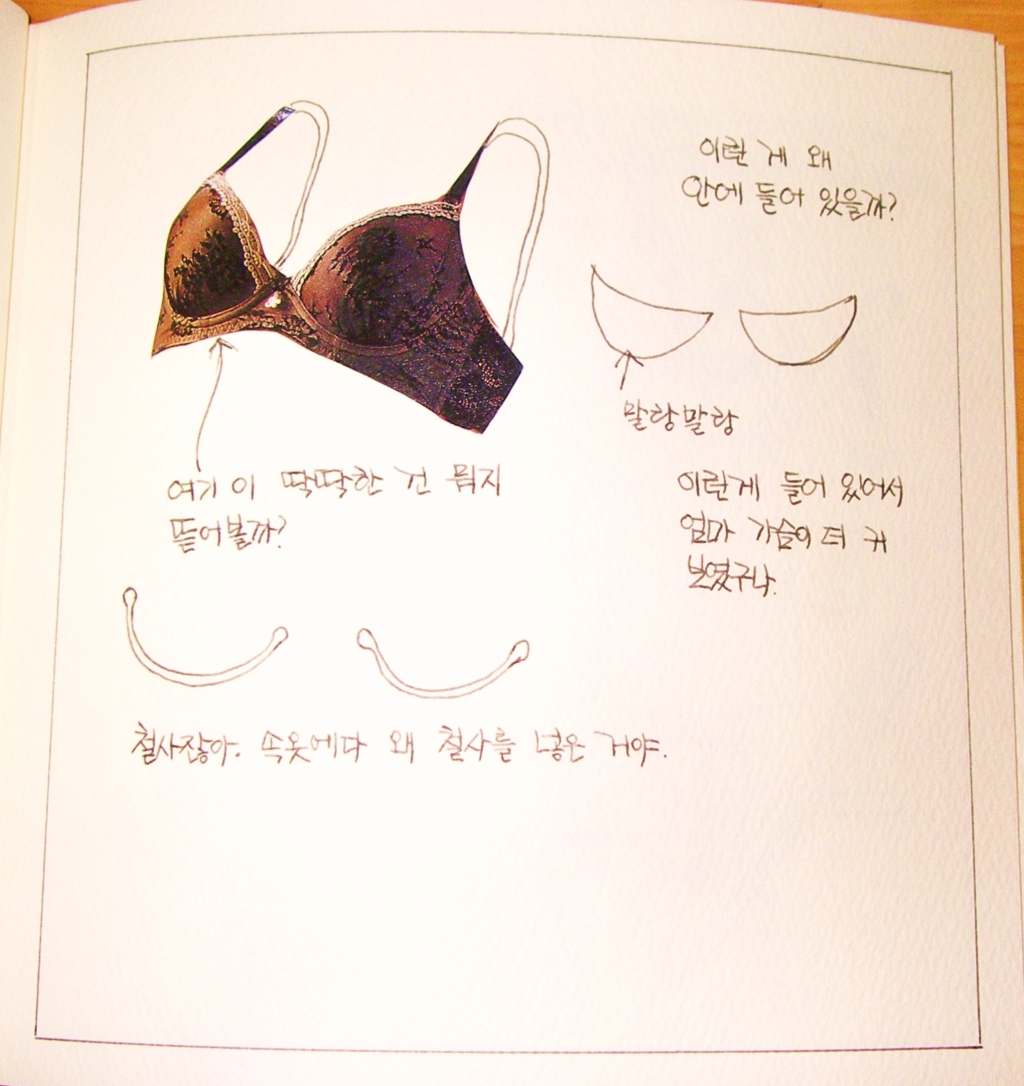 이런 게 왜
안에 들어 있을까?
말랑말랑
여기 이 딱딱한 건 뭐지
뜯어볼까?
이런게 들어 있어서
엄마 가슴이 더 커
보였구나.
철사잖아. 속옷에다 왜 철사를 넣은 거야.